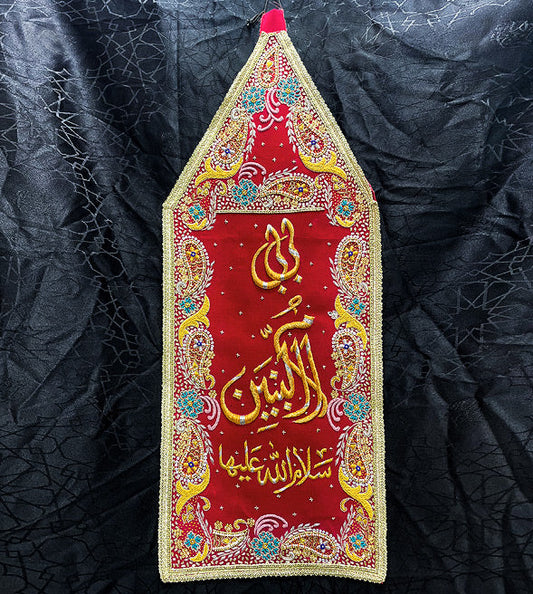 یا
أم البنین
سلام الله علیها